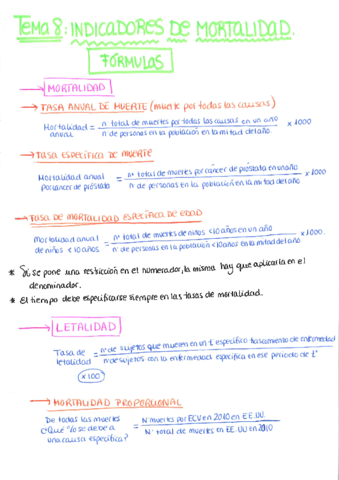 Tema 8: INDICADORES DE MORTALIDAD.
FÓRMULAS
MORTALIDAD
TASA ANUAL DE MUERTE (muerte por todas las causas)
Mortalidad anual = nº total de muertes por todas las causas en un año / nº de personas en la población en la mitad del año. x 1000
TASA ESPECÍFICA DE MUERTE
Mortalidad anual por cáncer de próstata = Nº total de muertes por cáncer de próstata en un año / nº de personas en la población en la mitad del año x 1000
TASA DE MORTALIDAD ESPECÍFICA DE EDAD
Mortalidad anual de niños <10 años = nº total de muertes de niños <10 años en un año / nº de personas en la población <10 años en la mitad del año x 1000.
* Si se pone una restricción en el numerador, la misma hay que aplicarla en el
denominador.
* El tiempo debe especificarse siempre en las tasas de mortalidad.
LETALIDAD
Tasa de letalidad = nº de sujetos que mueren en un t específico tras comienzo de enfermedad / nº de sujetos con la enfermedad específica en ese periodo de tº
x 100
MORTALIDAD PROPORCIONAL
De todas las muertes ¿Qué % se debe a una causa específica? = Nº muertes por ECV en 2010 en EE.UU. / Nº total de muertes en EE.UU en 2010